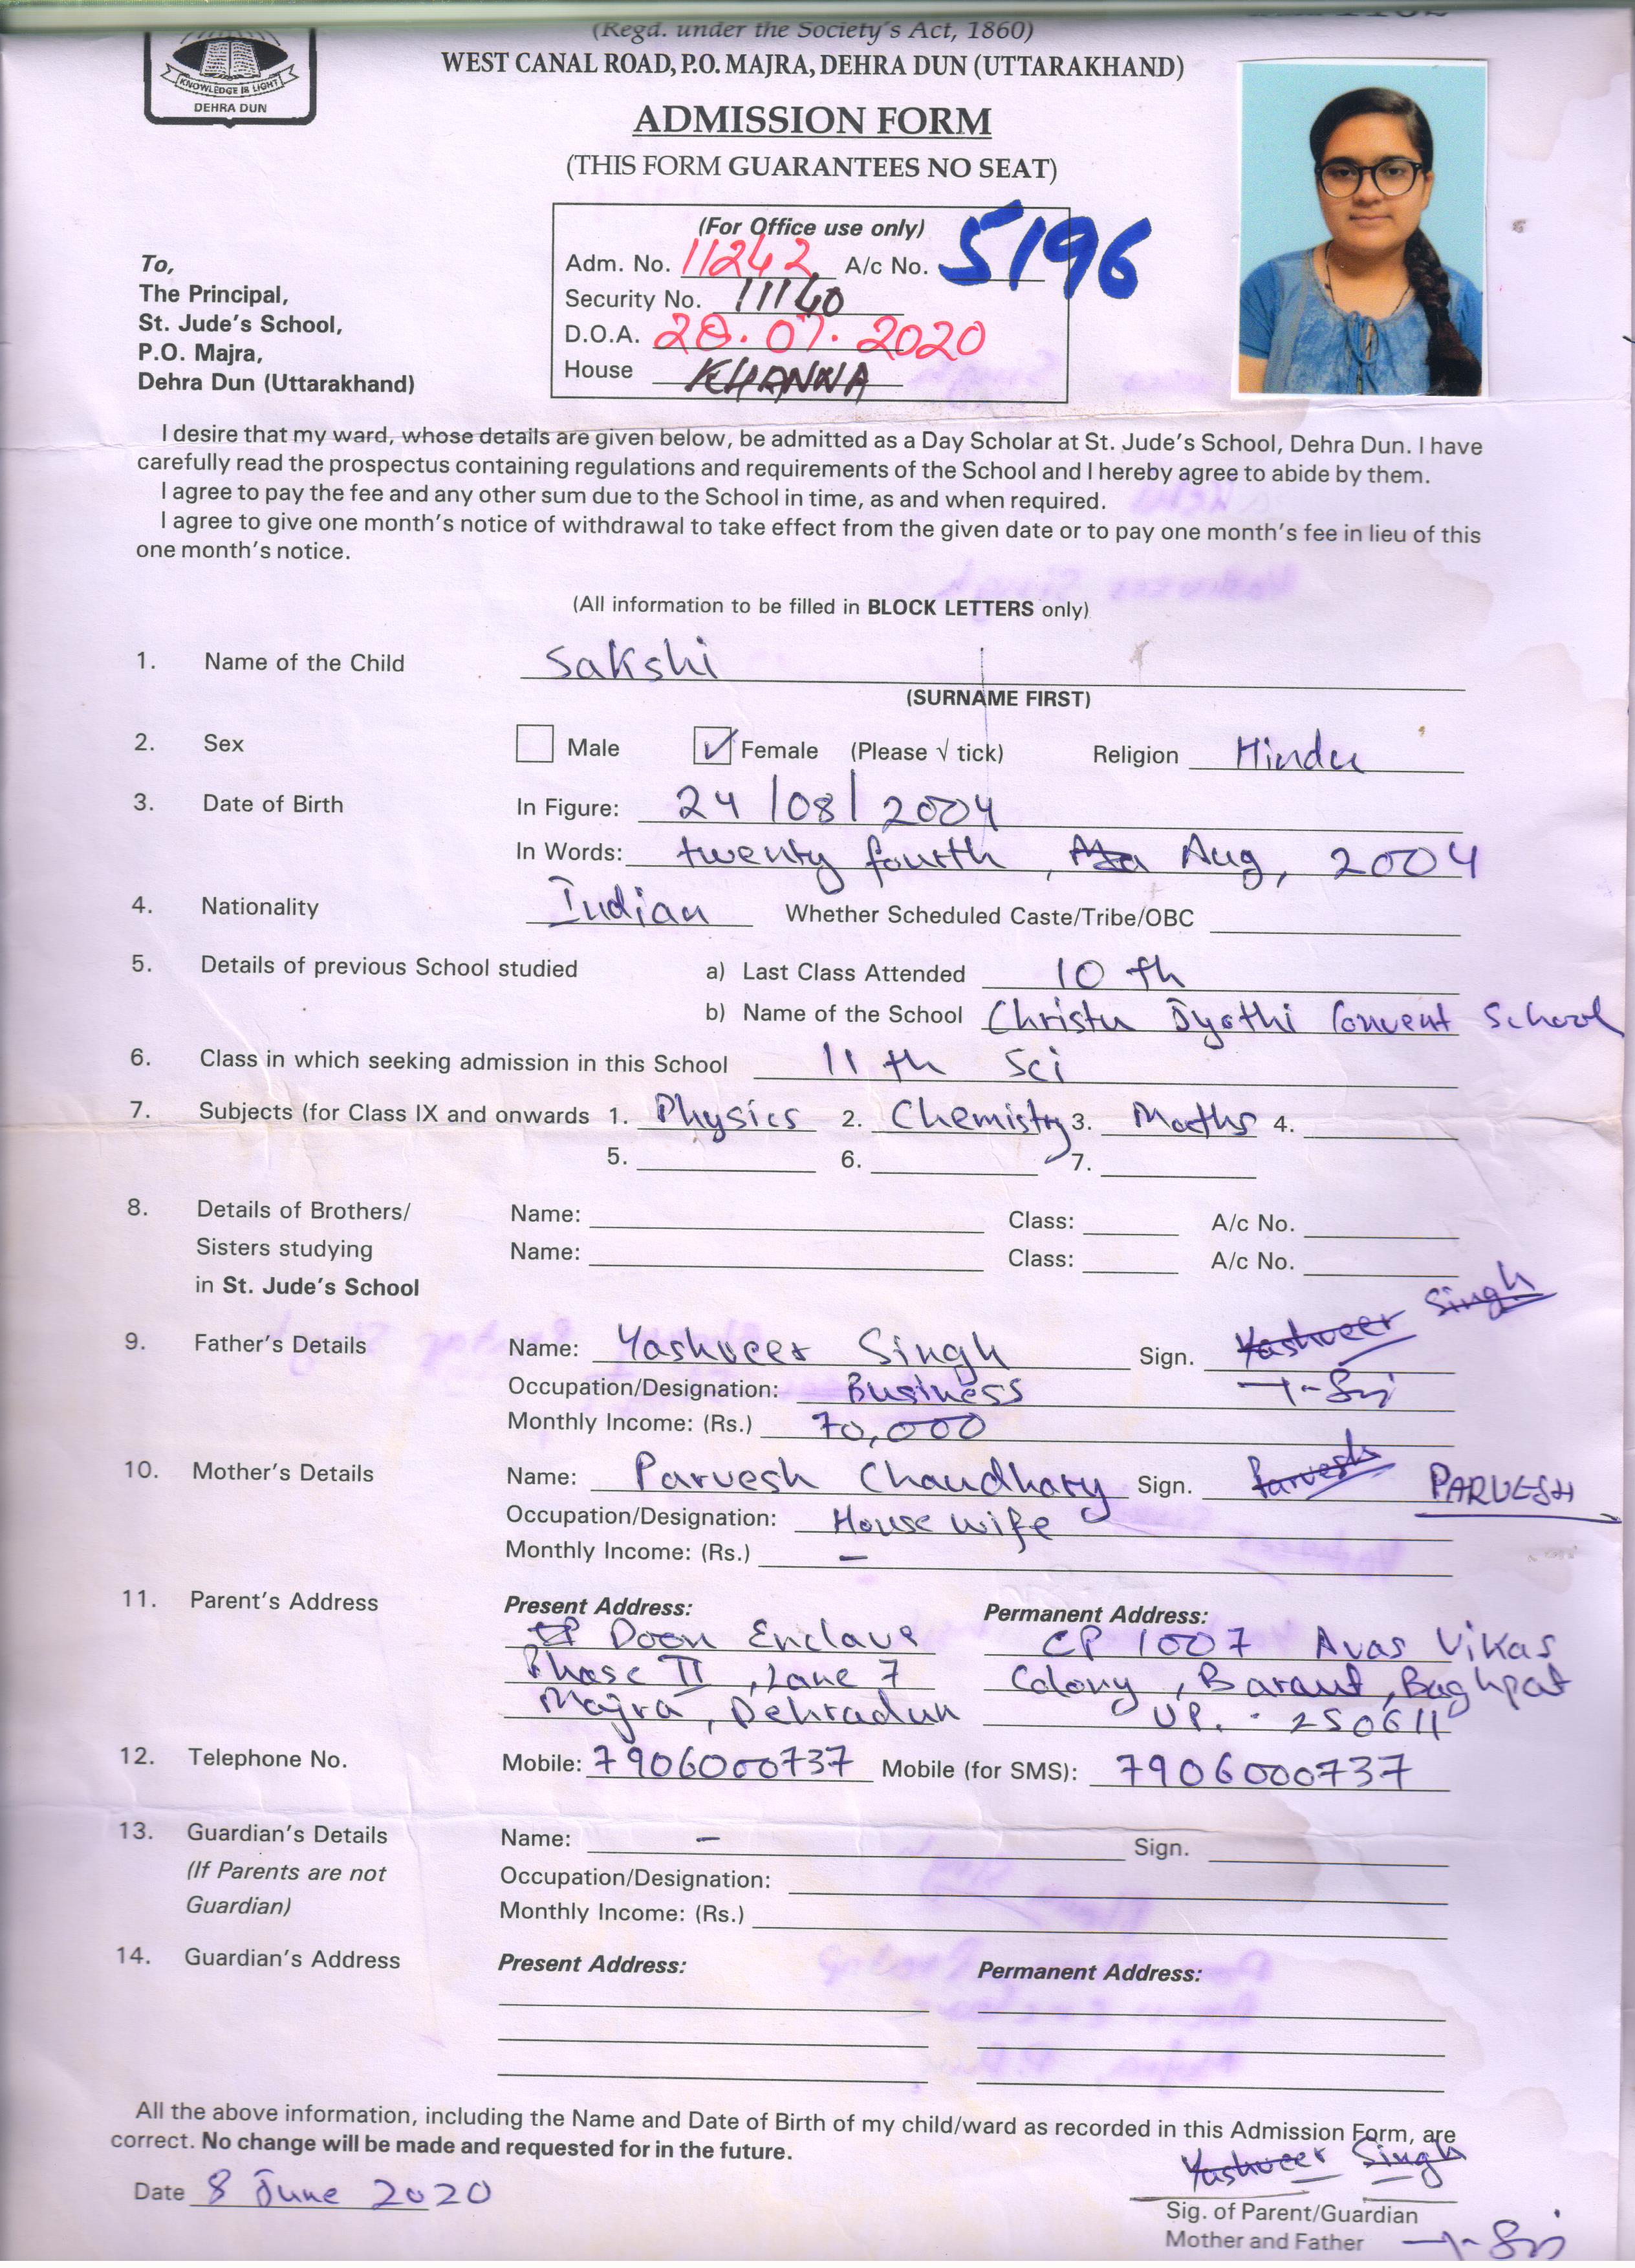 (Regd. under the Society's Act, 1860)
WEST CANAL ROAD, P.O. MAJRA, DEHRA DUN (UTTARAKHAND)
KNOWLEDGE IS LIGHT
DEHRA DUN
ADMISSION FORM
(THIS FORM GUARANTEES NO SEAT)
(For Office use only)
Adm. No. 11242 A/c No. 5196
Security No. 11140
D.O.A. 28.07.2020
House KHANNA
To,
The Principal,
St. Jude's School,
P.O. Majra,
Dehra Dun (Uttarakhand)
I desire that my ward, whose details are given below, be admitted as a Day Scholar at St. Jude's School, Dehra Dun. I have
carefully read the prospectus containing regulations and requirements of the School and I hereby agree to abide by them.
I agree to pay the fee and any other sum due to the School in time, as and when required.
I agree to give one month's notice of withdrawal to take effect from the given date or to pay one month's fee in lieu of this
one month's notice.
(All information to be filled in BLOCK LETTERS only)
1. Name of the Child Sakshi
(SURNAME FIRST)
2. Sex Male Female (Please √ tick) Religion Hindu
3. Date of Birth In Figure: 24/08/2004
In Words: twenty fourth, Aug, 2004
4. Nationality Indian Whether Scheduled Caste/Tribe/OBC
5. Details of previous School studied a) Last Class Attended 10 th
b) Name of the School Christu Jyothi Convent School
6. Class in which seeking admission in this School 11 th Sci
7. Subjects (for Class IX and onwards 1. Physics 2. Chemistry 3. Maths 4.
5. 6. 7.
8. Details of Brothers/ Name: Class: A/c No.
Sisters studying Name: Class: A/c No.
in St. Jude's School
9. Father's Details Name: Yashveer Singh Sign. Yashveer Singh
Occupation/Designation: Business
Monthly Income: (Rs.) 70,000
10. Mother's Details Name: Parvesh Chaudhary Sign. Parvesh PARVESH
Occupation/Designation: House wife
Monthly Income: (Rs.) –
11. Parent's Address Present Address: Permanent Address:
Doon Enclave CP 1007 Avas Vikas
Phase II, Lane 7 Colony, Baraut, Baghpat
Majra, Dehradun UP. - 250611
12. Telephone No. Mobile: 7906000737 Mobile (for SMS): 7906000737
13. Guardian's Details Name: – Sign.
(If Parents are not Occupation/Designation:
Guardian) Monthly Income: (Rs.)
14. Guardian's Address Present Address: Permanent Address:
All the above information, including the Name and Date of Birth of my child/ward as recorded in this Admission Form, are
correct. No change will be made and requested for in the future.
Yashveer Singh
Date 8 June 2020
Sig. of Parent/Guardian
Mother and Father